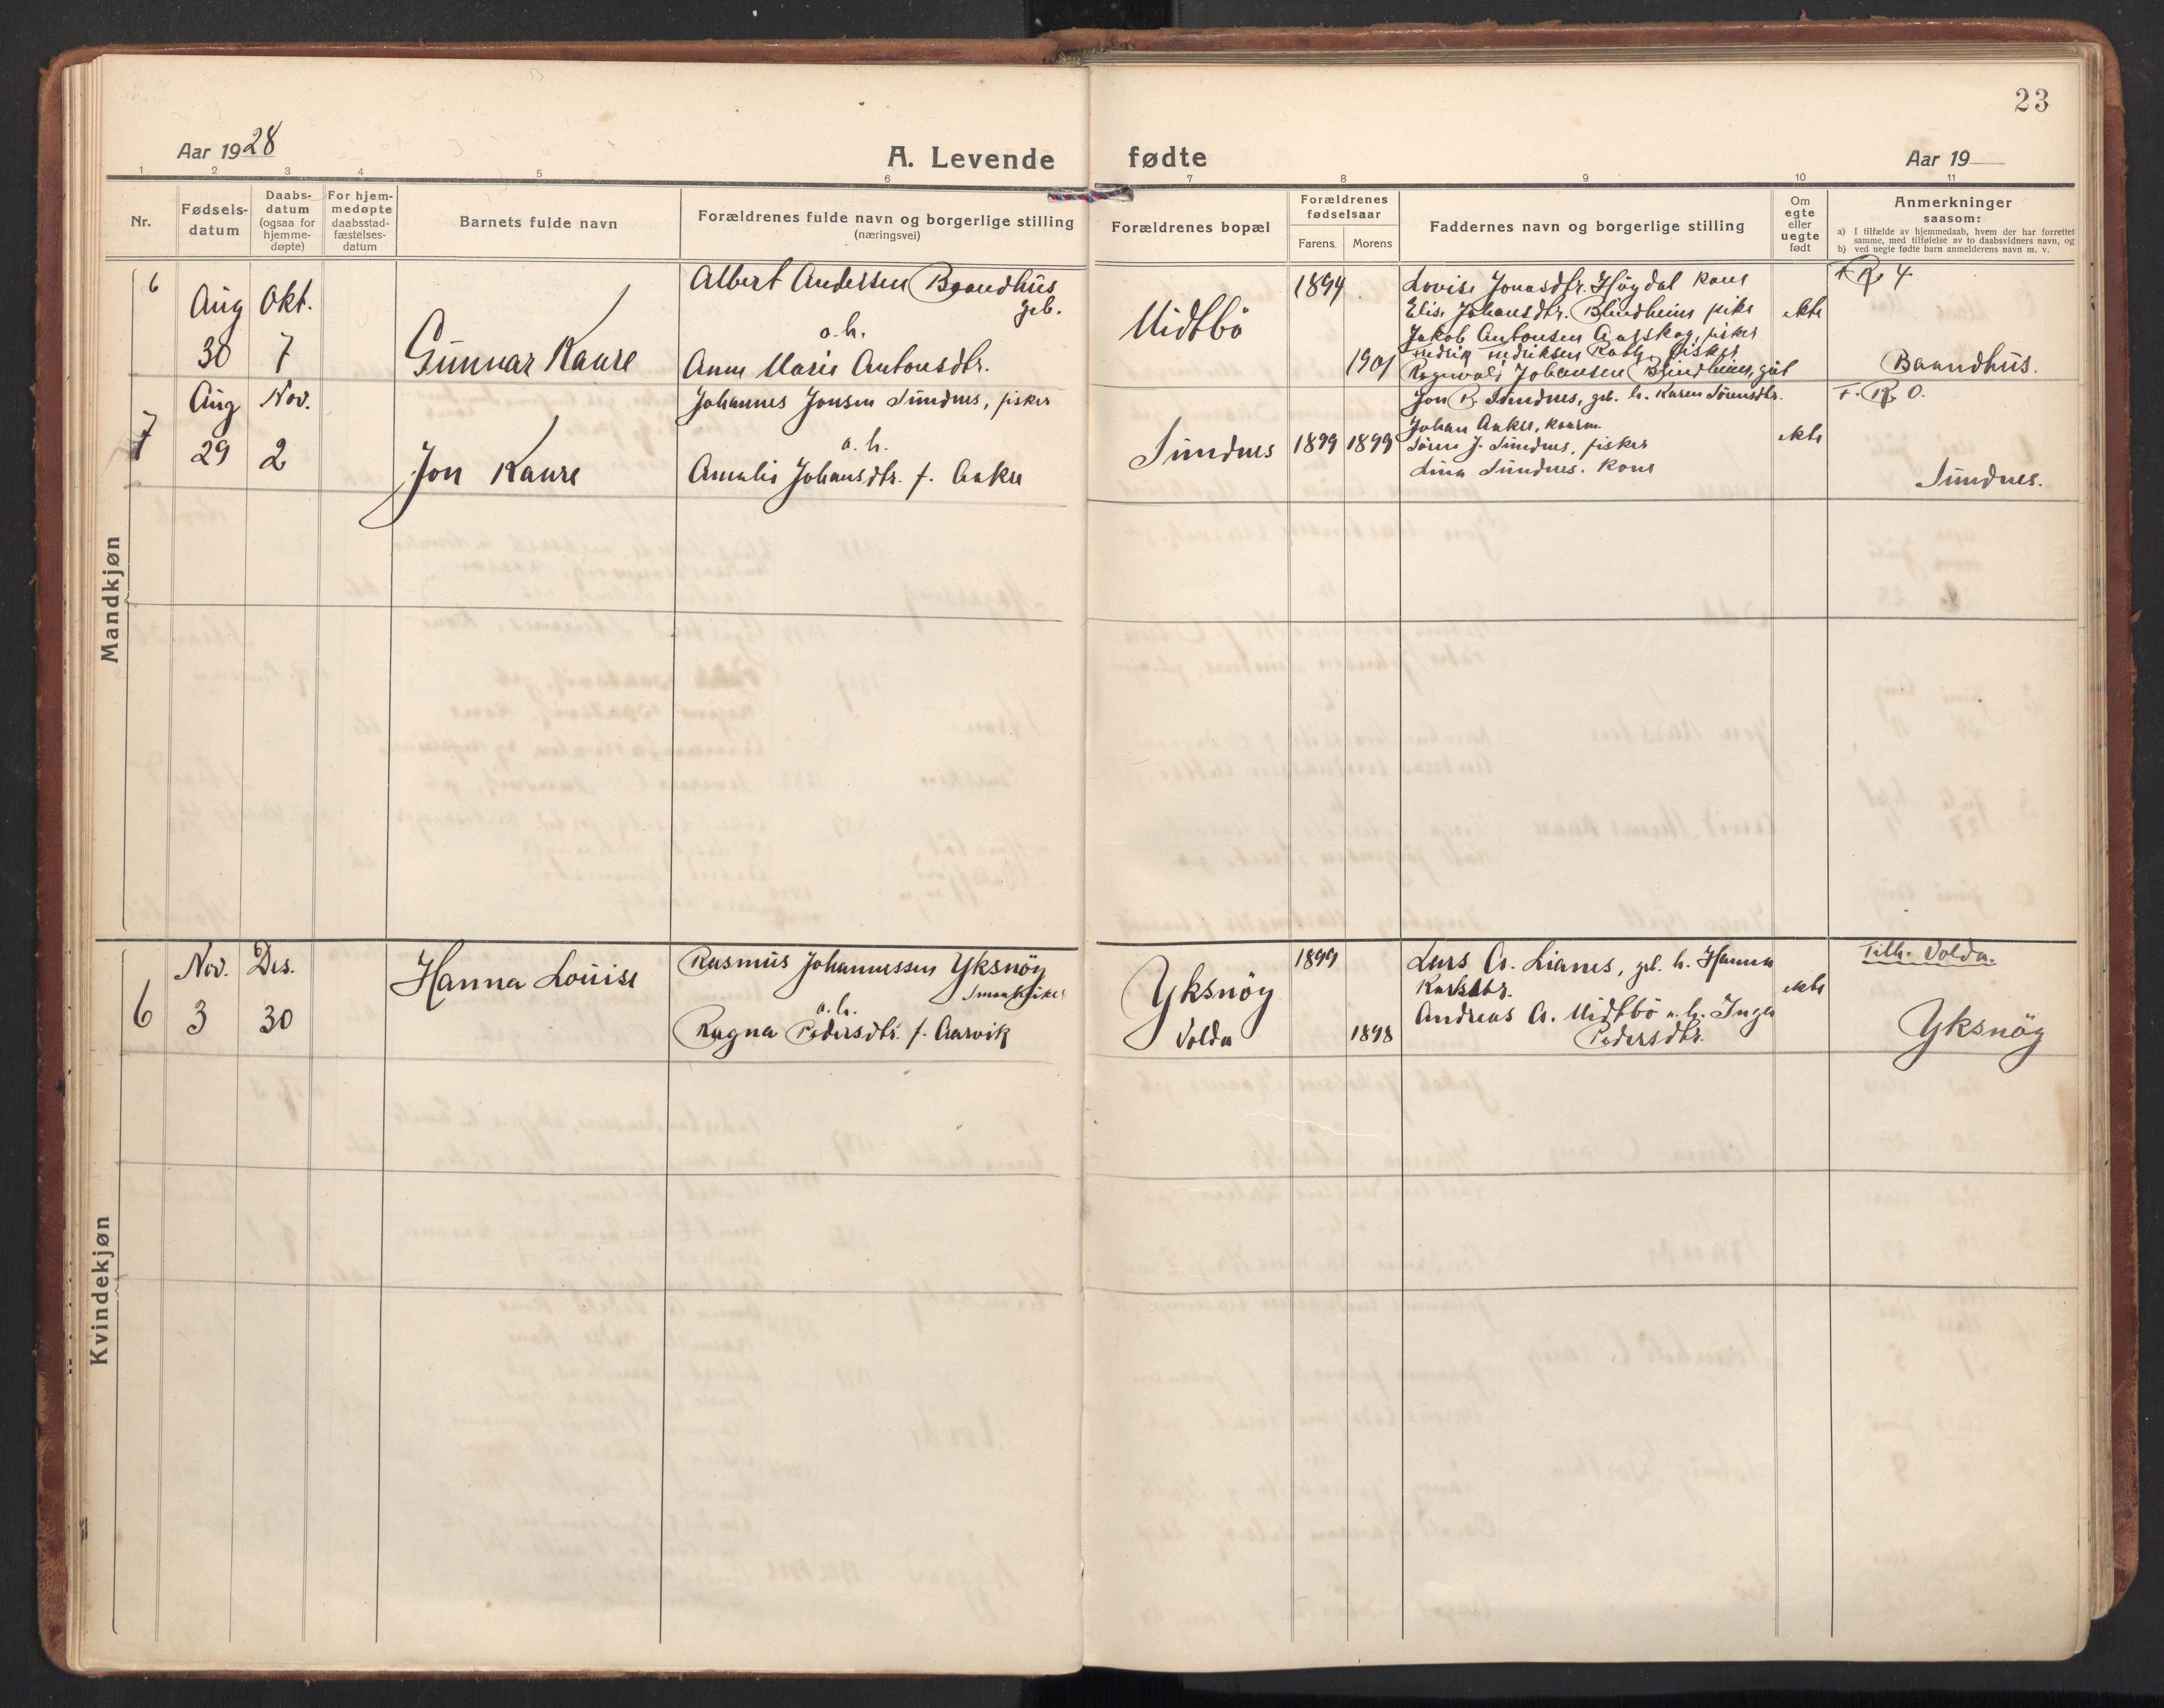 23
Aar 1928
A. Levende fødte
Aar 19
1 2 3 4 5 6 7 8 9 10 11
Nr.
Fødsels-
datum
Daabs-
datum
(ogsaa for
hjemme-
døpte)
For hjem-
medøpte
daabsstad-
fæstelses-
datum
Barnets fulde navn
Forældrenes fulde navn og borgerlige stilling
(næringsvei)
Forældrenes bopæl
Forældrenes
fødselsaar
Farens. Morens
Faddernes navn og borgerlige stilling
Om
egte
eller
uegte
født
Anmerkninger
saasom:
a) I tilfælde av hjemmedaab, hvem der har forrettet
samme, med tilføielse av to daabsvidners navn, og
b) ved uegte fødte barn anmelderens navn m. v.
Mandkjøn
6
Aug Okt.
30 7
Gunnar Kaare
Albert Andersen Baandhus
geb.
o. h.
Anne Marie Antonsdtr.
Midtbö
1894
1901
Lovise Jonasdtr. Högdal kone
Elise Johansdtr. Blindheim pike
Jakob Antonsen Aarskog, fisker
fisker
Ragnvald Johansen Blindheim, gut
ekte
F. R. 4.
Baandhus.
7
Aug Nov.
29 2
Jon Kaare
Johannes Jonsen Sundnes, fisker
o. h.
Amalie Johansdtr. f. Aakre
Sundnes
1899 1899
Jon R. Sundnes, geb. h. Karen Sörensdtr.
Johan Aakre, kaarm.
Sören J. Sundnes, fisker
Lina Sundnes. kone
ekte
F. R. O.
Sundnes.
Kvindekjøn
6
Nov. Des.
3 30
Hanna Louise
Rasmus Johannessen Yksnöy
o. h.
Ragna Pedersdtr. f. Aarvik
Yksnöy
Volda
1899
1898
Lars A. Lianes, geb. h. Hanna
Andreas A. Midtbö o. h. Inga
Pedersdtr.
ekte
Tilh. Volda.
Yksnöy